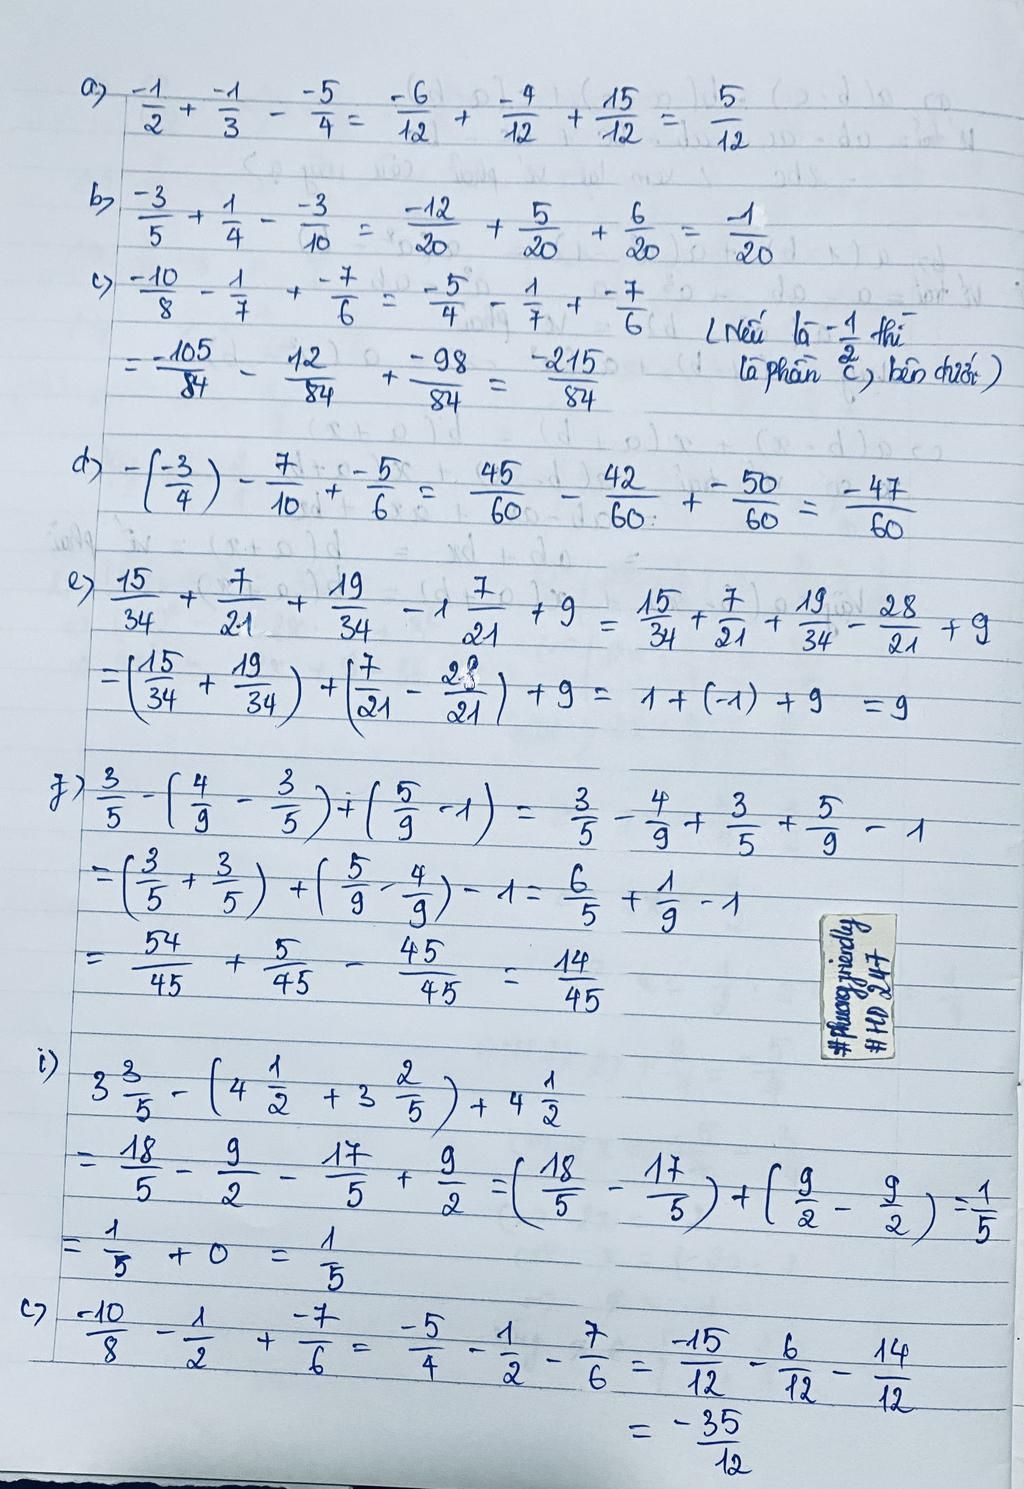 a) -1/2 + -1/3 - -5/4 = -6/12 + -4/12 + 15/12 = 5/12
b) -3/5 + 1/4 - -3/10 = -12/20 + 5/20 + 6/20 = -1/20
c) -10/8 - 1/7 + -7/6 = -5/4 - 1/7 + -7/6
(Nếu là -1/2 thì
= -105/84 - 12/84 + -98/84 = -215/84
là phần c, bên dưới)
d) -(-3/4) - 7/10 + -5/6 = 45/60 - 42/60 + -50/60 = -47/60
e) 15/34 + 7/21 + 19/34 - 1 7/21 + 9 = 15/34 + 7/21 + 19/34 - 28/21 + 9
= (15/34 + 19/34) + (7/21 - 28/21) + 9 = 1 + (-1) + 9 = 9
f) 3/5 - (4/9 - 3/5) + (5/9 - 1) = 3/5 - 4/9 + 3/5 + 5/9 - 1
= (3/5 + 3/5) + (5/9 - 4/9) - 1 = 6/5 + 1/9 - 1
= 54/45 + 5/45 - 45/45 = 14/45
#phuongfriendly
#HD 247
i) 3 3/5 - (4 1/2 + 3 2/5) + 4 1/2
= 18/5 - 9/2 - 17/5 + 9/2 = (18/5 - 17/5) + (9/2 - 9/2) = 1/5
= 1/5 + 0 = 1/5
c) -10/8 - 1/2 + -7/6 = -5/4 - 1/2 - 7/6 = -15/12 - 6/12 - 14/12
= -35/12